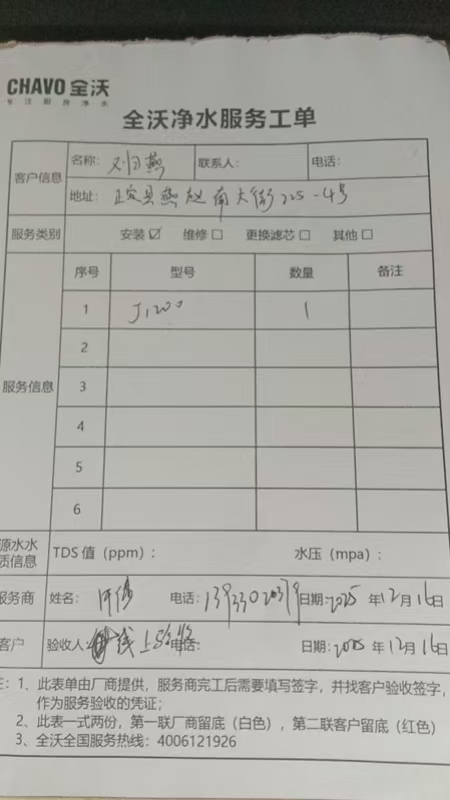 CHAVO 全沃
专注厨房净水
全沃净水服务工单
客户信息 名称：刘日燕 联系人： 电话：
地址：正定县燕赵南大街225-4号
服务类别 安装☑ 维修□ 更换滤芯□ 其他□
服务信息 序号 型号 数量 备注
1 J1200 1
2
3
4
5
6
源水水质信息 TDS 值（ppm）： 水压（mpa）：
服务商 姓名： 电话：13933020379 日期：2025 年 12 月 16 日
客户 验收人： 线上 电话： 日期：2025 年 12 月 16 日
注：1、此表单由厂商提供，服务商完工后需要填写签字，并找客户验收签字，
作为服务验收的凭证；
2、此表一式两份，第一联厂商留底（白色），第二联客户留底（红色）
3、全沃全国服务热线：4006121926